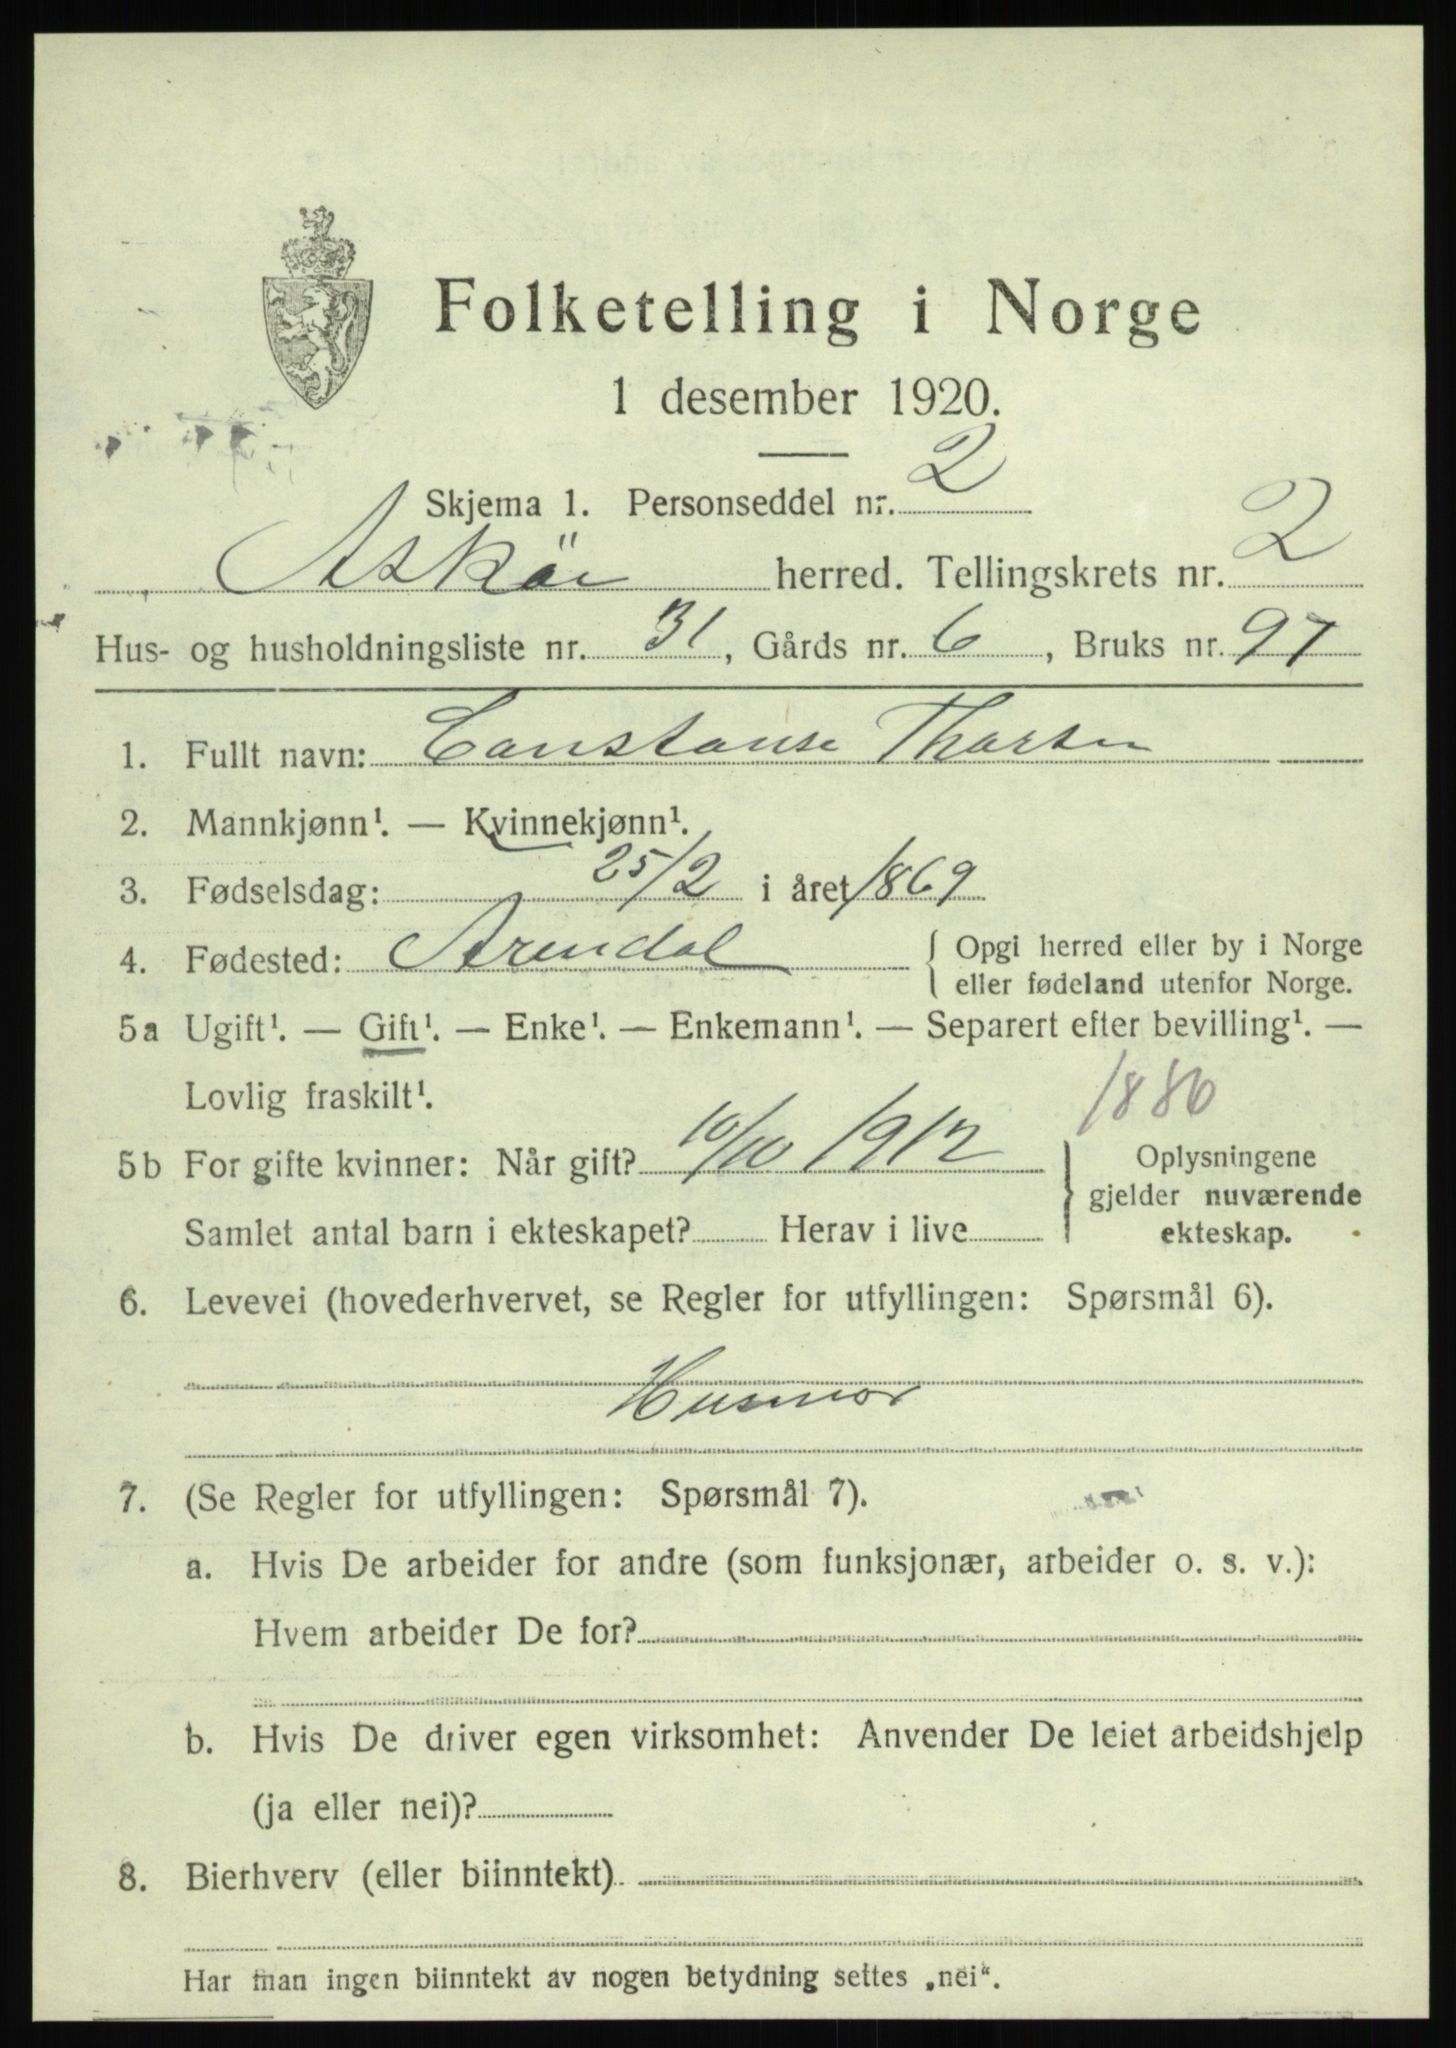 Folketelling i Norge
1 desember 1920.
Skjema 1. Personseddel nr. 2
Askøi herred. Tellingskrets nr. 2
Hus- og husholdningsliste nr. 31, Gårds nr. 6, Bruks nr. 97
1. Fullt navn: Constanse Thorsen
2. Mannkjønn¹. — Kvinnekjønn¹.
3. Fødselsdag: 25/2 i året 1869
4. Fødested: Arendal { Opgi herred eller by i Norge
eller fødeland utenfor Norge.
5a Ugift¹. — Gift¹. — Enke¹. — Enkemann¹. — Separert efter bevilling¹. —
Lovlig fraskilt¹.
1886
5b For gifte kvinner: Når gift? 10/10 1912
Samlet antal barn i ekteskapet? Herav i live
} Oplysningene
gjelder nuværende
ekteskap.
6. Levevei (hovederhvervet, se Regler for utfyllingen: Spørsmål 6).
Husmor
7. (Se Regler for utfyllingen: Spørsmål 7).
a. Hvis De arbeider for andre (som funksjonær, arbeider o. s. v.):
Hvem arbeider De for?
b. Hvis De driver egen virksomhet: Anvender De leiet arbeidshjelp
(ja eller nei)?
8. Bierhverv (eller biinntekt)
Har man ingen biinntekt av nogen betydning settes „nei“.